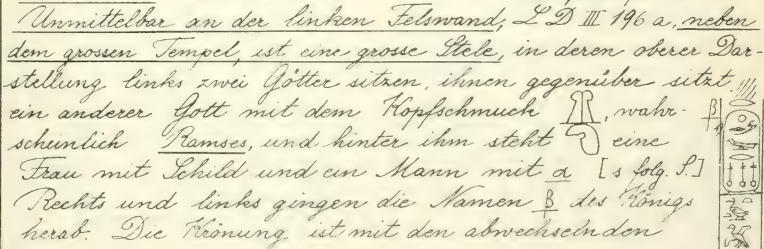 Unmittelbar an der linken Felswand, L D III 196 a, neben
dem grossen Tempel, ist eine grosse Stele, in deren oberer Dar-
stellung links zwei Götter sitzen, ihnen gegenüber sitzt
ein anderer Gott mit dem Kopfschmuck , wahr- β
scheinlich Ramses, und hinter ihm steht eine
Frau mit Schild und ein Mann mit α [s folg. S.]
Rechts und links gingen die Namen β des Königs
herab. Die Krönung ist mit den abwechselnden